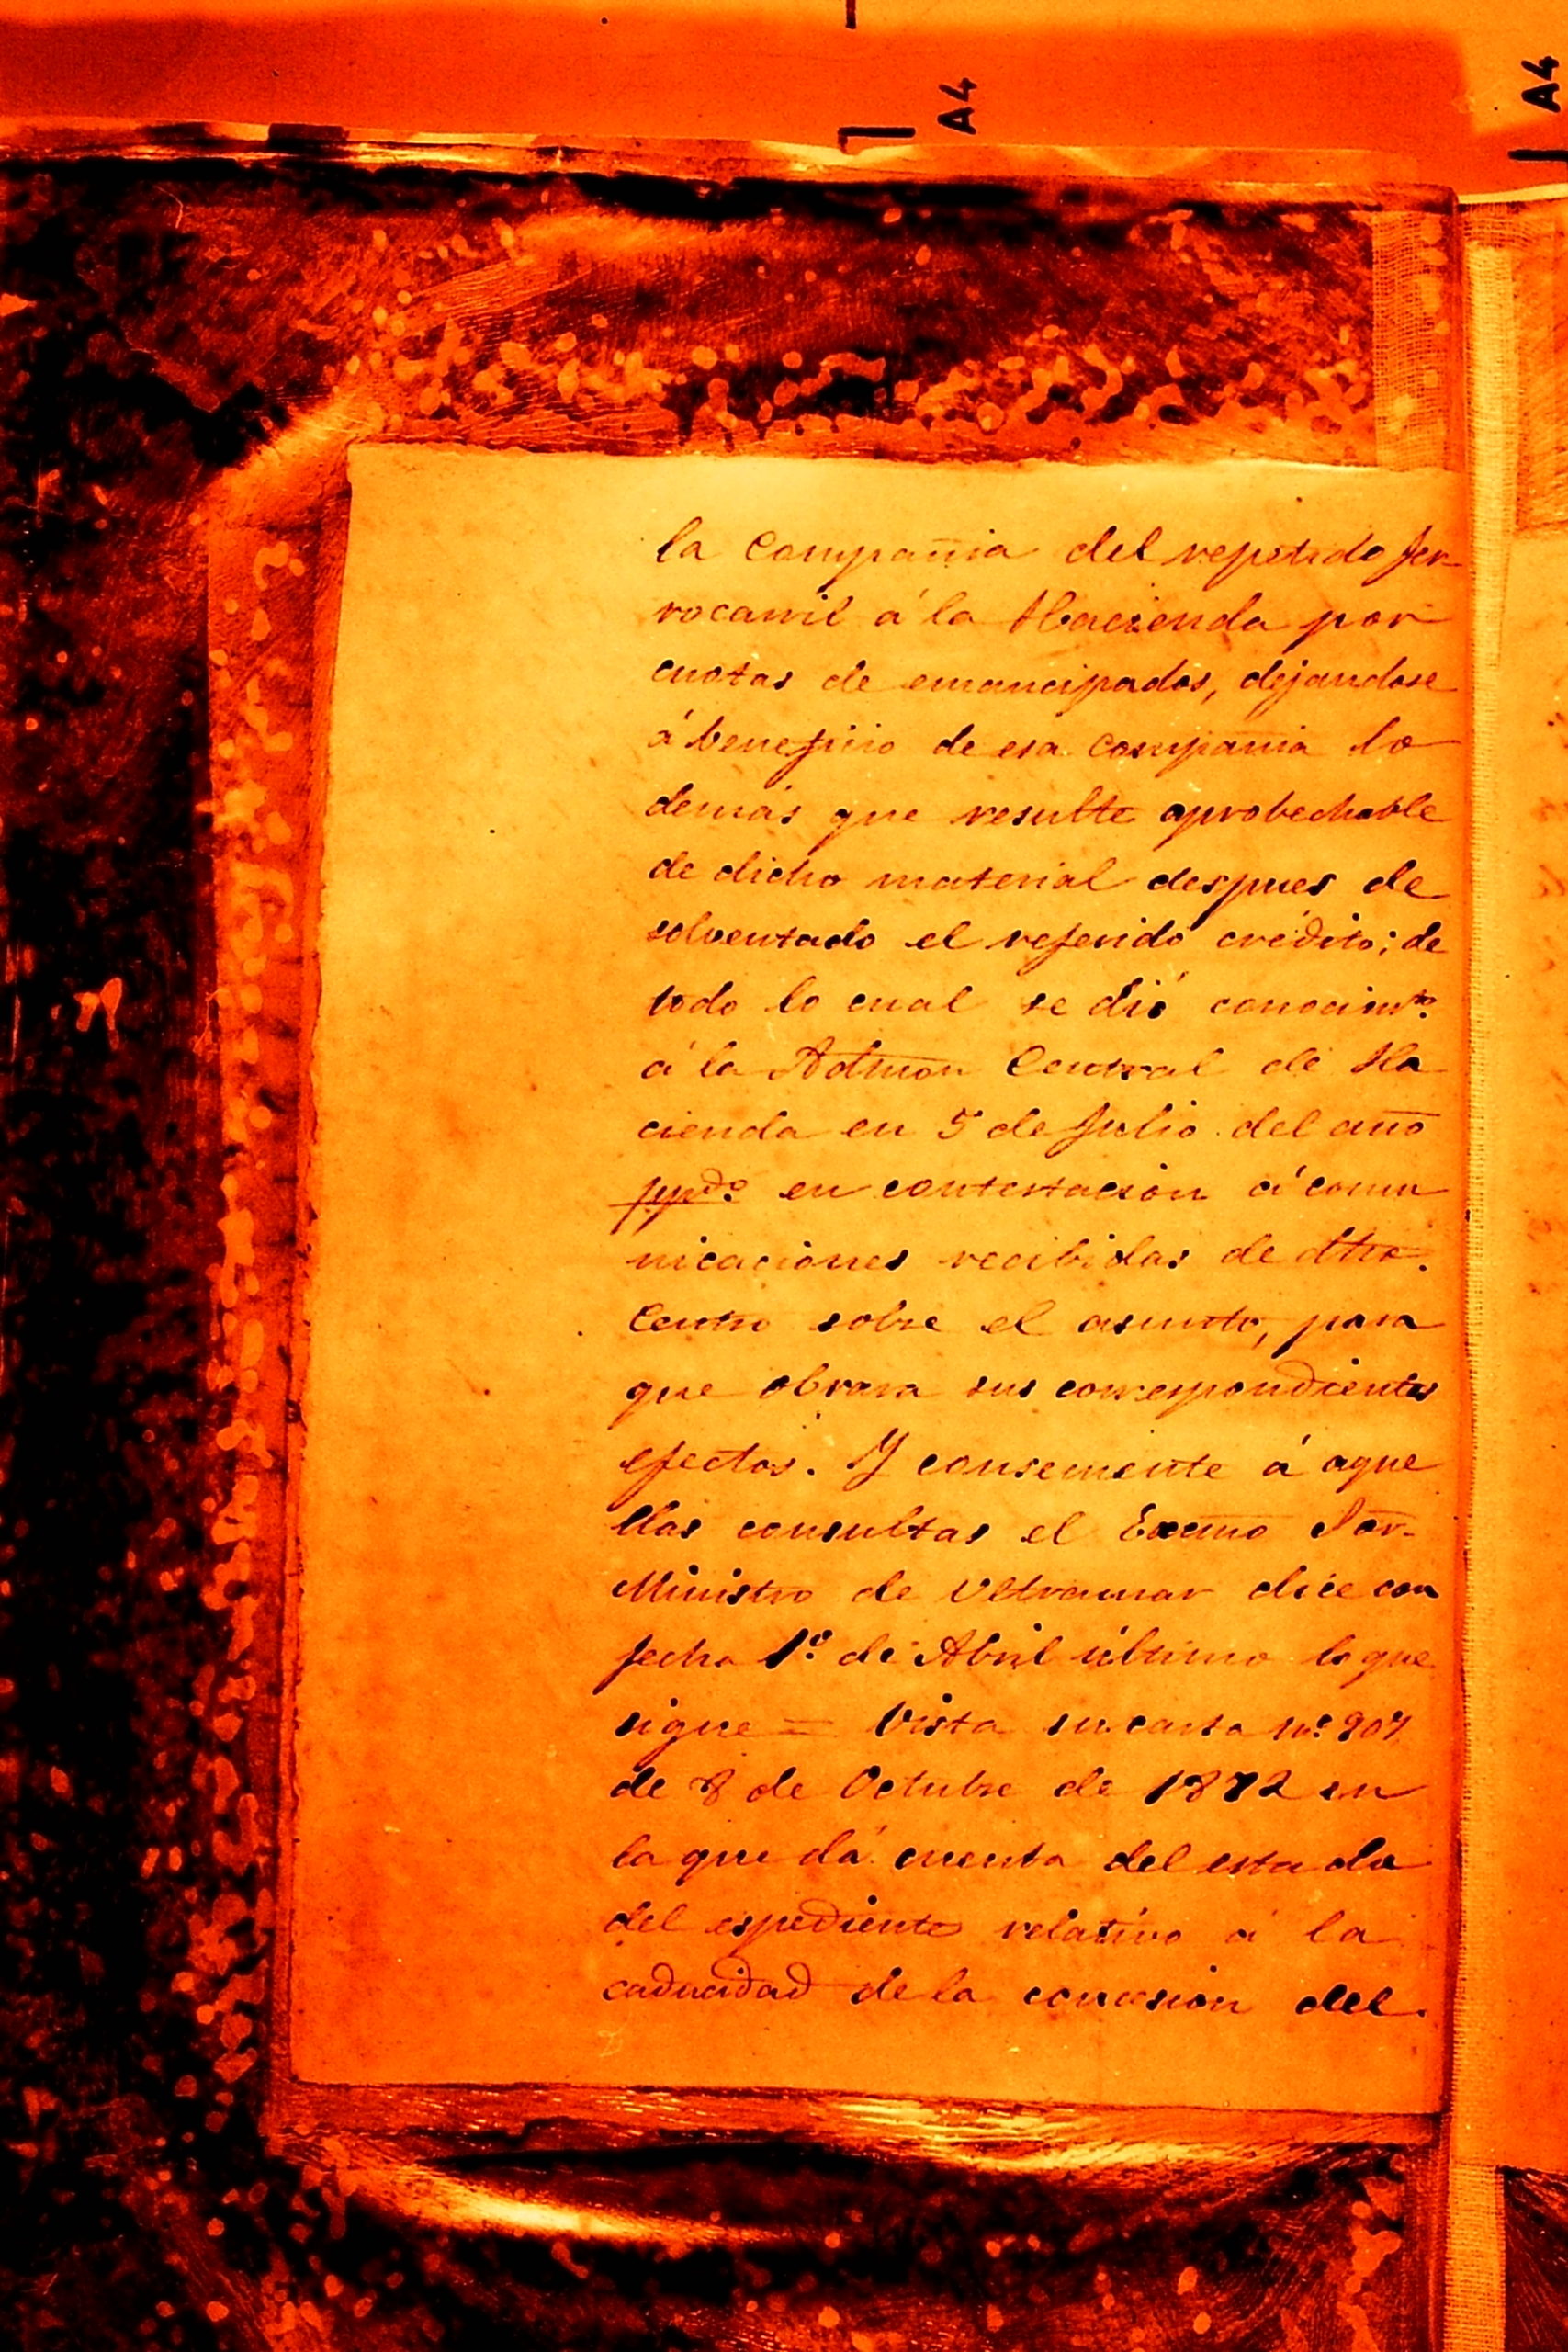 A4
A4
la Compañia del repetido fer-
rocarril á la Hacienda por
cuotas de emancipados, dejandose
á beneficio de esa Compañia lo
demás que resulte aprobechable
de dicho material despues de
solventado el referido crédito; de
todo lo cual se dió conocimto.
á la Admon Central de Ha
cienda en 5 de Julio del año
ppdo. en contestacion á comu
nicaciones recibidas de dho.
Centro sobre el asunto, para
que obrara sus correspondientes
efectos. Y á aque
llas consultas el Excmo Sor.
Ministro de Ultramar dice con
fecha 1º de Abril último lo que
sigue = Vista su carta nº
de 8 de Octubre de 1872 en
la que dá cuenta del estado
del espediente relativo á la
caducidad de la concesion del.